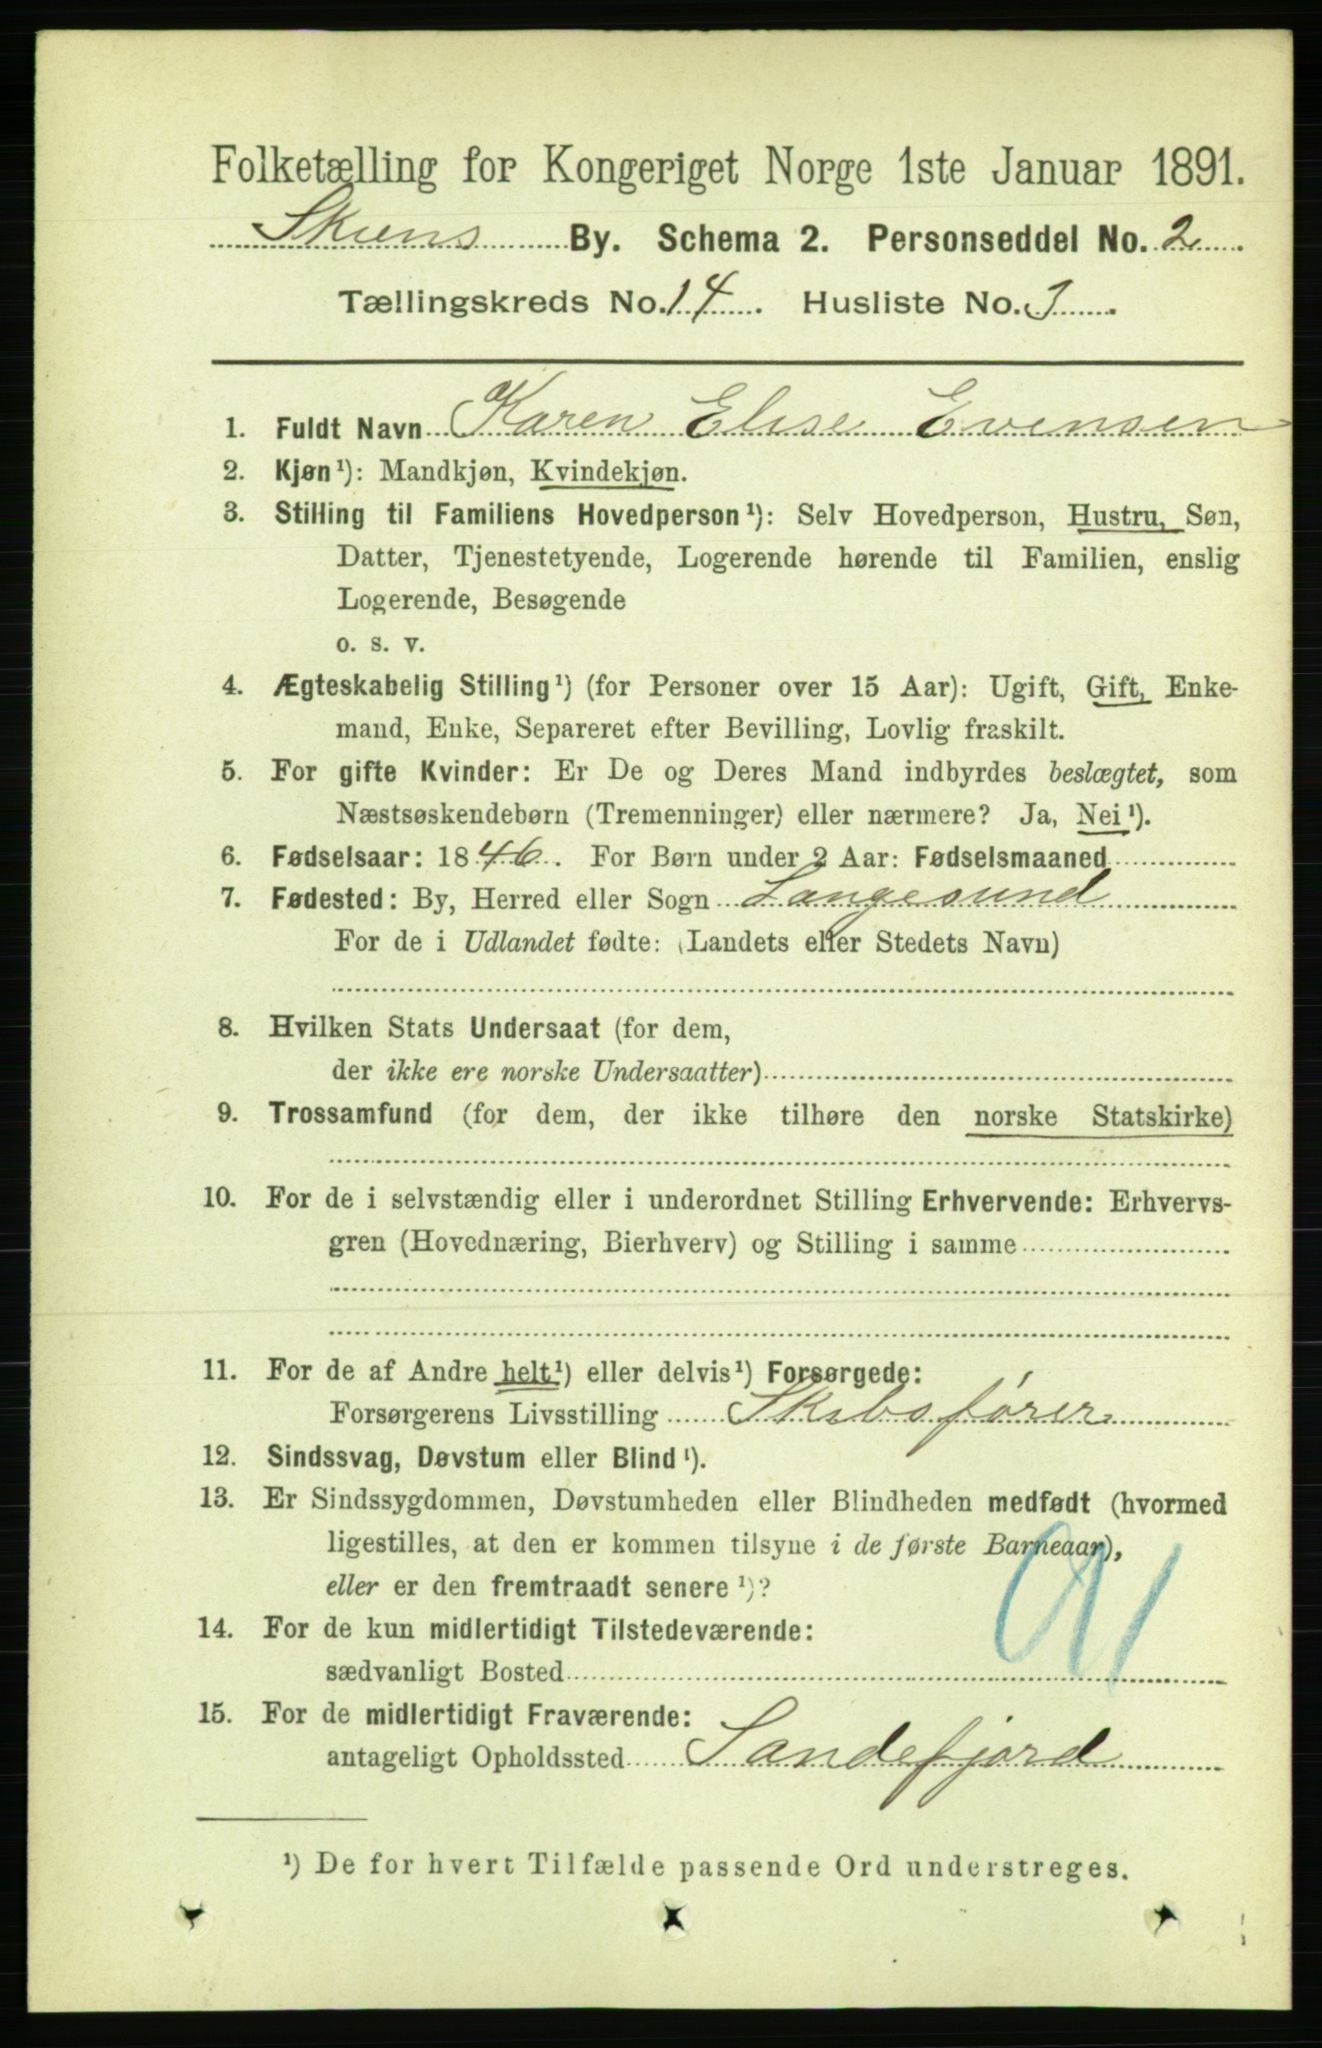 Folketælling for Kongeriget Norge 1ste Januar 1891.
Skiens By. Schema 2. Personseddel No. 2
Tællingskreds No. 14. Husliste No.
1. Fuldt Navn Karen Elise Evensen
2. Kjøn¹): Mandkjøn, Kvindekjøn.
3. Stilling til Familiens Hovedperson¹): Selv Hovedperson, Hustru, Søn,
Datter, Tjenestetyende, Logerende hørende til Familien, enslig
Logerende, Besøgende
o. s. v.
4. Ægteskabelig Stilling¹) (for Personer over 15 Aar): Ugift, Gift, Enke-
mand, Enke, Separeret efter Bevilling, Lovlig fraskilt.
5. For gifte Kvinder: Er De og Deres Mand indbyrdes beslægtet, som
Næstsøskendebørn (Tremenninger) eller nærmere? Ja, Nei¹).
6. Fødselsaar: 1846. For Børn under 2 Aar: Fødselsmaaned
7. Fødested: By, Herred eller Sogn Langesund
For de i Udlandet fødte: (Landets eller Stedets Navn)
8. Hvilken Stats Undersaat (for dem,
der ikke ere norske Undersaatter)
9. Trossamfund (for dem, der ikke tilhøre den norske Statskirke)
10. For de i selvstændig eller i underordnet Stilling Erhvervende: Erhvervs-
gren (Hovednæring, Bierhverv) og Stilling i samme
11. For de af Andre helt¹) eller delvis¹) Forsørgede:
Forsørgerens Livsstilling Skibsfører
12. Sindssvag, Døvstum eller Blind¹).
13. Er Sindssygdommen, Døvstumheden eller Blindheden medfødt (hvormed
ligestilles, at den er kommen tilsyne i de første Barneaar),
eller er den fremtraadt senere¹)?
91
14. For de kun midlertidigt Tilstedeværende:
sædvanligt Bosted
15. For de midlertidigt Fraværende:
antageligt Opholdssted Sandefjord
¹) De for hvert Tilfælde passende Ord understreges.